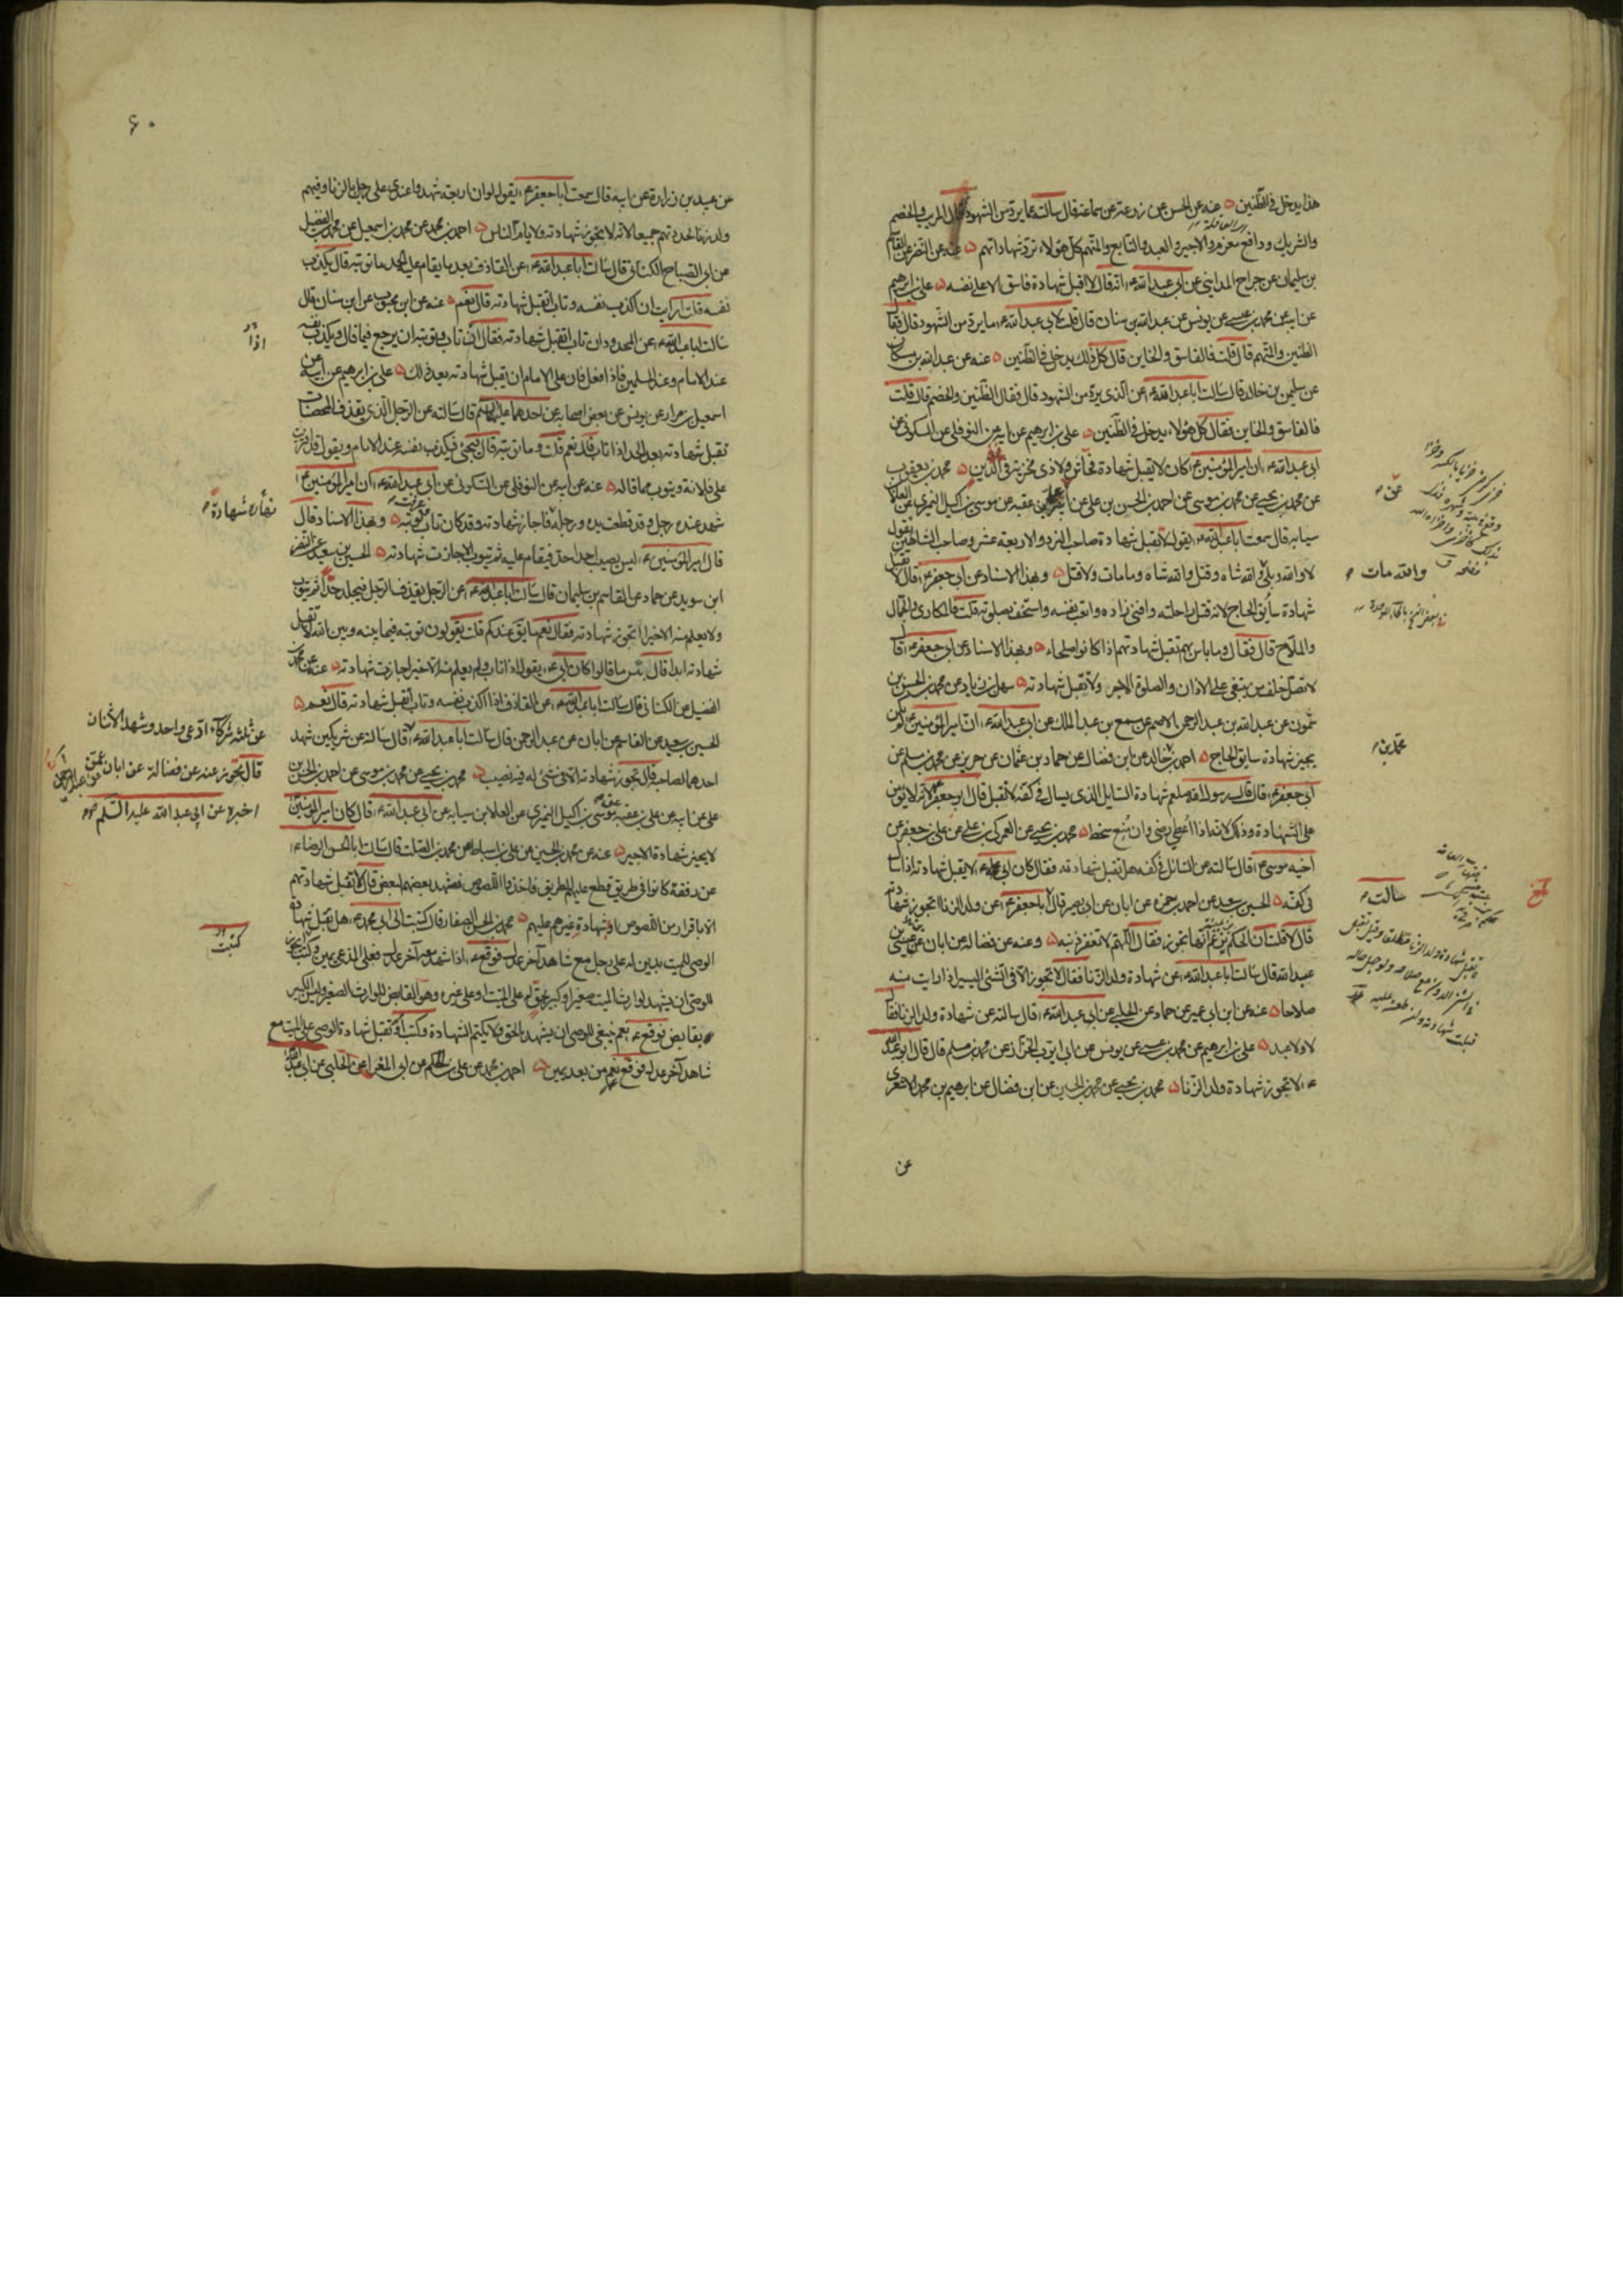 هذا يدخل في الظنين عنه عن الحسن عن زرعة عن سماعة قال سالته عما يرد من الشهود قال المريب والخصم
والشريك ودافع مغرم والاجير والعبد والتابع والمتهم كل هؤلاء ترد شهاداتهم عنه عن النضر عن القاسم
بن سليمان عن جراح المدايني عن ابي عبد الله ع انه قال لا اقبل شهادة فاسق الا على نفسه علي بن ابرهيم
عن ابيه عن محمد بن عيسى عن يونس عن عبد الله بن سنان قال قلت لابي عبد الله ع ما يرد من الشهود قال فقال
الظنين والمتهم قال قلت فالفاسق والخاين قال كل ذلك يدخل في الظنين عنه عن عبد الله بن مسكان
عن سليمن بن خالد قال سالت ابا عبد الله ع عن الذي يرد من الشهود قال فقال الظنين والخصم قال قلت
فالفاسق والخاين فقال كل هؤلاء يدخل في الظنين علي بن ابرهيم عن ابيه عن النوفلي عن السكوني عن
ابي عبد الله ع ان امير المؤمنين ع كان لا يقبل شهادة فحاش ولا ذي مخزية في الدين محمد بن يعقوب
عن محمد بن يحيى عن محمد بن موسى عن احمد بن الحسن بن علي عن ابيه عن علي بن عقبه عن موسى بن اكيل النميري عن العلا
سيابه قال سمعت ابا عبد الله ع يقول لا تقبل شهادة صاحب النرد والاربعة عشر وصاحب الشاهين يقول
لا والله وبلى والله شاه وقتل والله شاه وما مات ولا قتل وبهذا الاسناد عن ابي جعفر ع قال لا تقبل
شهادة سابق الحاج لانه قتل راحلته وافنى زاده واتعب نفسه واستخف بصلوته قلت فالمكاري والجمال
والملاح قال فقال وما باس بهم تقبل شهادتهم اذا كانوا صلحاء وبهذا الاسناد عن ابي جعفر ع قال
لا تصل خلف من يبتغي على الاذان والصلوة الاجر ولا تقبل شهادته سهل بن زياد عن محمد بن الحسن بن
شمون عن عبد الله بن عبد الرحمن الاصم عن مسمع بن عبد الملك عن ابي عبد الله ع ان امير المؤمنين ع لم يكن
يجيز شهادة سابق الحاج احمد بن خالد عن ابن فضال عن حماد بن عثمان عن حريز عن محمد بن مسلم عن
ابي جعفر ع قال قال رسول الله صلعم شهادة السايل الذي يسال في كفه لا تقبل قال ابو جعفر ع لانه لا يؤمن
على الشهادة وذلك لانه اذا اعطي رضي وان منع سخط محمد بن يحيى عن العمركي بن علي عن علي بن جعفر عن
اخيه موسى ع قال سالته عن السائل في كفه هل تقبل شهادته فقال كان ابي ع لا يقبل شهادته اذا سال
في كفه الحسين بن سعيد عن احمد بن حمزه عن ابان عن ابي بصير قال ابا جعفر ع عن ولد الزنا اتجوز شهادته
قال لا قلت ان الحكم يزعم انها تجوز فقال اللهم لا تغفر ذنبه وعنه عن فضاله عن ابان عن عيسى بن
عبد الله قال سالت ابا عبد الله ع عن شهادة ولد الزنا فقال لا تجوز الا في الشئ اليسير اذا رايت منه
صلاحا عنه عن ابن ابي عمير عن حماد عن الحلبي عن ابي عبد الله ع قال سالته عن شهادة ولد الزنا فقال
لا ولا عبد علي بن ابرهيم عن محمد بن عيسى عن يونس عن ابي ايوب الخزاز عن محمد بن مسلم قال قال ابو عبد الله
ع لا تجوز شهادة ولد الزنا محمد بن يحيى عن محمد بن الحسين عن ابن فضال عن ابرهيم بن محمد الاشعري
عن
عن م
والله مات م
محمد بن م
سالت م
٦٠
عن عبيد بن زراره عن ابيه قال سمعت ابا جعفر ع يقول لو ان اربعة شهدوا عندي على رجل بالزنا وفيهم
ولد زنا لحددتهم جميعا لانه لا تجوز شهادته ولا يام الناس احمد بن محمد عن محمد بن اسمعيل عن محمد بن الفضيل
عن ابي الصباح الكناني قال سالت ابا عبد الله ع عن القاذف بعد ما يقام عليه الحد ما توبته قال يكذب
نفسه قلت ارايت ان اكذب نفسه وتاب اتقبل شهادته قال نعم عنه عن ابن محبوب عن ابن سنان قال
سالت ابا عبد الله ع عن المحدود ان تاب اتقبل شهادته فقال اذا تاب وتوبته ان يرجع فيما قال ويكذب نفسه
عند الامام وعند المسلمين فاذا فعل فان على الامام ان يقبل شهادته بعد ذلك علي بن ابرهيم عن ابيه عن
اسمعيل بن مرار عن يونس عن بعض اصحابه عن احدهما عليهما السلم قال سالته عن الرجل الذي يقذف المحصنات
تقبل شهادته بعد الحد اذا تاب قال نعم قلت وما توبته قال يجئ فيكذب نفسه عند الامام ويقول قد افتريت
على فلانة ويتوب مما قاله عنه عن ابيه عن النوفلي عن السكوني عن ابي عبد الله ع ان امير المؤمنين ع
شهد عنده رجل وقد قطعت يده ورجله فاجاز شهادته وقد كان تاب وعرفت توبته وبهذا الاسناد قال
قال امير المؤمنين ع ليس يصيب احد احدا فيقام عليه ثم يتوب الا جازت شهادته الحسين بن سعيد عن النضر
ابن سويد عن حماد عن القاسم بن سليمان قال سالت ابا عبد الله ع عن الرجل يقذف الرجل فيجلد حدا ثم يتوب
ولا يعلم منه الا خير اتجوز شهادته فقال نعم ما يق عندكم قلت يقولون توبته فيما بينه وبين الله لا تقبل
شهادته ابدا قال بئس ما قالوا كان ابي ع يقول اذا تاب ولم يعلم منه الا خير جازت شهادته عنه عن محمد بن
الفضيل عن الكناني قال سالت ابا عبد الله ع عن القاذف اذا اكذب نفسه وتاب اتقبل شهادته قال نعم
الحسين بن سعيد عن القاسم عن ابان عن عبد الرحمن قال سالت ابا عبد الله ع قال سالته عن شريكين شهد
احدهما لصاحبه قال تجوز شهادته الا في شئ له فيه نصيب محمد بن يحيى عن محمد بن موسى عن احمد بن الحسن بن
علي عن ابيه عن علي بن عقبه عن موسى بن اكيل النميري عن العلا بن سيابه عن ابي عبد الله ع قال كان امير المؤمنين ع
لا يجيز شهادة الاجير عنه عن محمد بن الحسين عن علي بن اسباط عن محمد بن الصلت قال سالت ابا الحسن الرضا ع
عن رفقة كانوا في طريق قطع عليهم الطريق فاخذوا اللصوص فشهد بعضهم لبعض قال لا تقبل شهادتهم
الا باقرار من اللصوص او شهادة غيرهم عليهم محمد بن الحسن الصفار قال كتبت الى ابي محمد ع هل تقبل شهادة
الوصي للميت بدين له على رجل مع شاهد آخر عدل فوقع ع اذا شهد معه آخر عدل فعلى المدعي يمين وكتب ايجوز
للوصي ان يشهد لوارث الميت صغيرا او كبيرا بحق له على الميت او على غيره وهو القابض للوارث الصغير وليس الكبير
بقابض فوقع ع نعم ينبغي للوصي ان يشهد بالحق ولا يكتم الشهادة وكتب او تقبل شهادة الوصي على الميت مع
شاهد آخر عدل فوقع نعم من بعد يمين احمد بن محمد عن علي بن الحكم عن ابي المغرا عن الحلبي عن ابي عبد الله
اذا
شهادة م
عن ثلثه شركاء ادعى واحد وشهد الاثنان
قال تجوز عنه عن فضالة عن ابان عمن
اخبره عن ابي عبد الله عليه السلم
كتبت